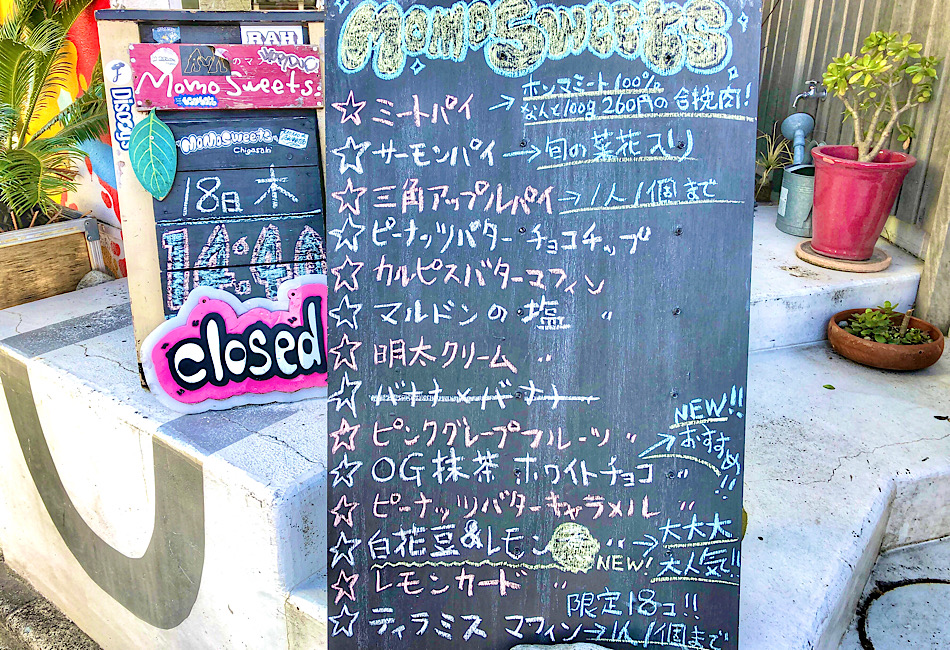 RAH
Momo Sweets.
Discovs
MOMO SWEETS
Chigasaki
18日 木
14:00
closed
MOMO SWEETS
☆ミートパイ → ホンマミート100%
なんと100g 260円の合挽肉!
☆サーモンパイ → 旬の菜花入り
☆三角アップルパイ → 1人1個まで
☆ピーナッツバター チョコチップ
☆カルピスバターマフィン
☆マルドンの塩 〃
☆明太クリーム 〃
☆バナナ×バナナ
☆ピンクグレープフルーツ 〃
NEW!!
おすすめ!!
☆OG抹茶 ホワイトチョコ 〃
☆ピーナッツバターキャラメル 〃
☆白花豆&レモン 〃 → 大大大大人気!!
☆レモンカード 〃 NEW!
限定18コ!!
☆ティラミス マフィン → 1人1個まで